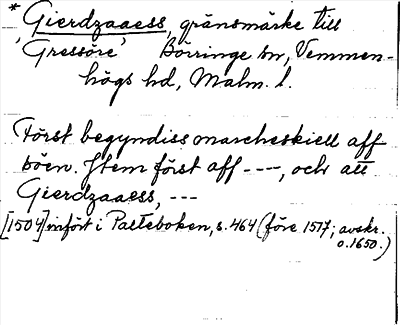 * Gierdzaaess, gränsmärke till
'Gressöre' Börringe sn, Vemmen-
högs hd, Malm. l.
Först begyndiss marcheskiell aff
söen. Item först aff ----, och att
Gierdzaaess, ---
[1504] infört i Palteboken, s. 464 (före 1517; avskr.
o. 1650.)